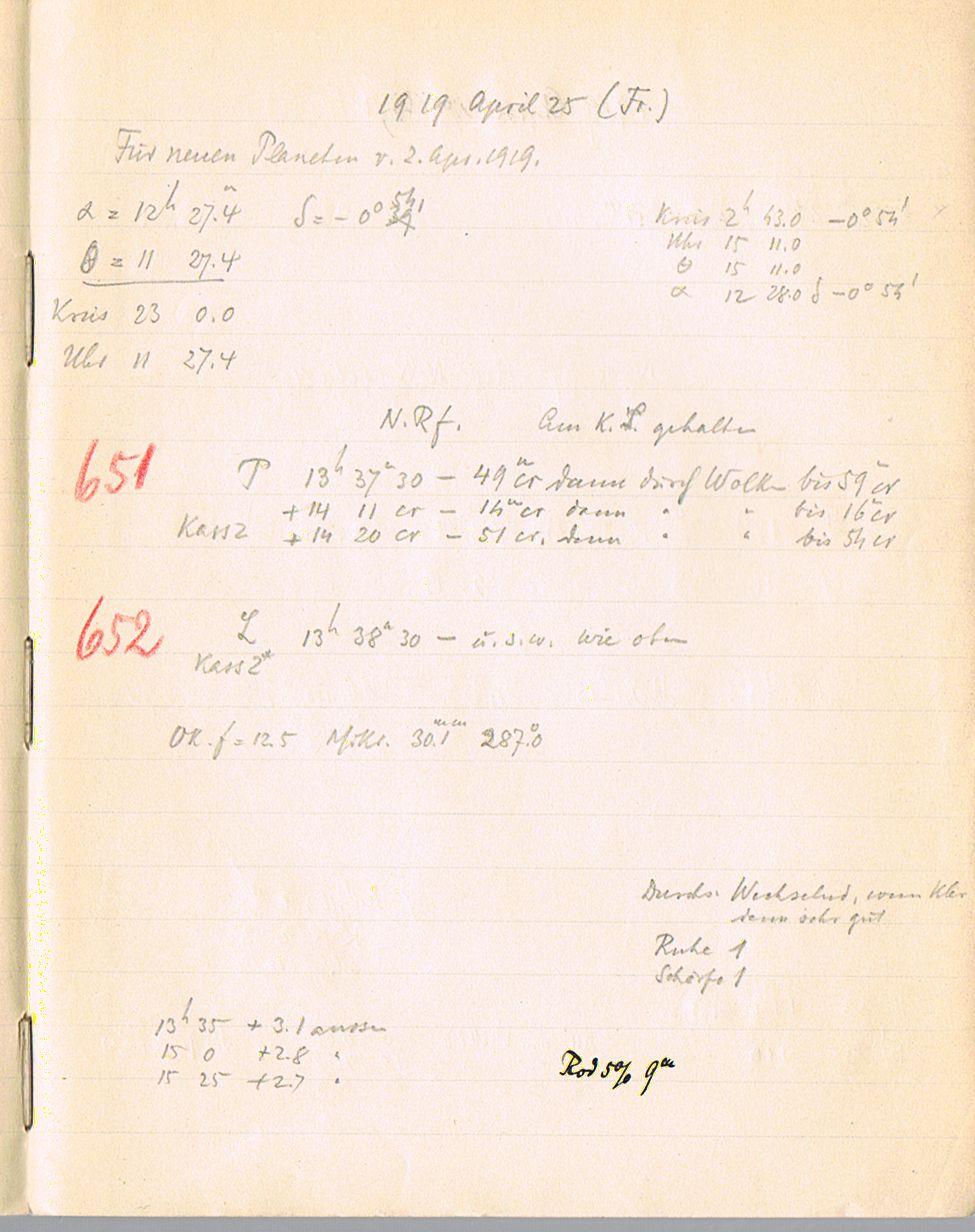 1919 April 25 (Fr.)
Für neuen Planeten v. 2. Apr. 1919.
α = 12h 27.m4 δ = - 0° 54'
θ = 11 27.4
Kreis 23 0.0
Uhr 11 27.4
Kreis 2h 43.0 -0° 54'
Uhr 15 11.0
θ 15 11.0
α 12 28.0 δ -0° 54'
N. Rf. Am K.L. gehalten
651 P 13h 37m 30 - 49m cr dann durch Wolken bis 59m cr
+ 14 11 cr - 14m cr dann " " bis 16m cr
Kass 2 + 14 20 cr - 51 cr. dann " " bis 54 cr
652 L 13h 38m 30 - u.s.w. wie oben
Kass 2*
Ok. f = 12.5 Mikr. 30.1mm 287.°0
Durchs. Wechselnd, wenn klar
dann sehr gut
Ruhe 1
Schärfe 1
13h 35 + 3.1 aussen
15 0 +2.8 "
15 25 +2.7 "
Rod 5% 9m